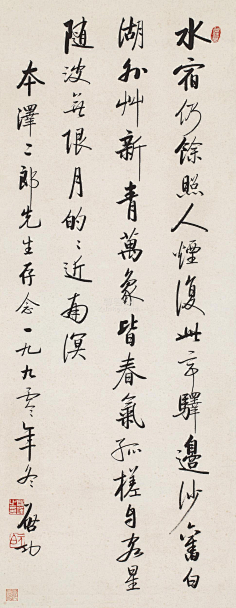 水宿仍餘照人煙復此亭驛邊沙舊白
湖外艸新青萬象皆春氣孤槎自客星
隨波無限月的〻近南溟
本澤二郎先生存念一九九零年冬 啟功